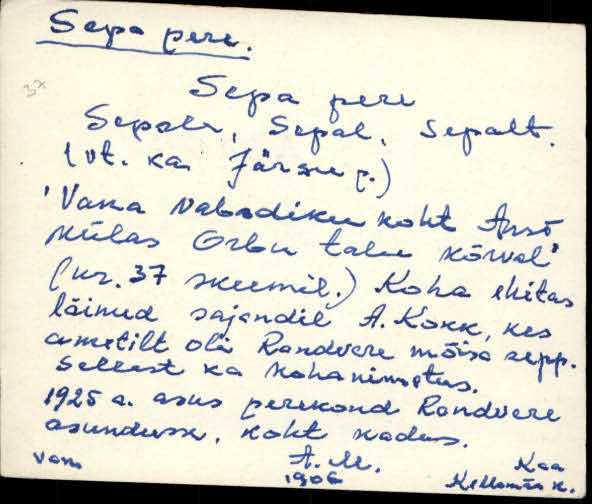 Sepa pere.
3x
Sepa pere
Sepale, Sepal, Sepalt.
(vt. ka Järsu p.)
'Vana vabadiku koht Ansi
külas Orbu talu kõrval'
(nr. 37 skeemil.) Koha ehitas
läinud sajandil A. Kokk, kes
ametilt oli Randvere mõisa sepp.
Sellest ka kohanimetus.
1925 a. asus perekond Randvere
asundusse, koht kadus.
A. M.
1906
Kaa